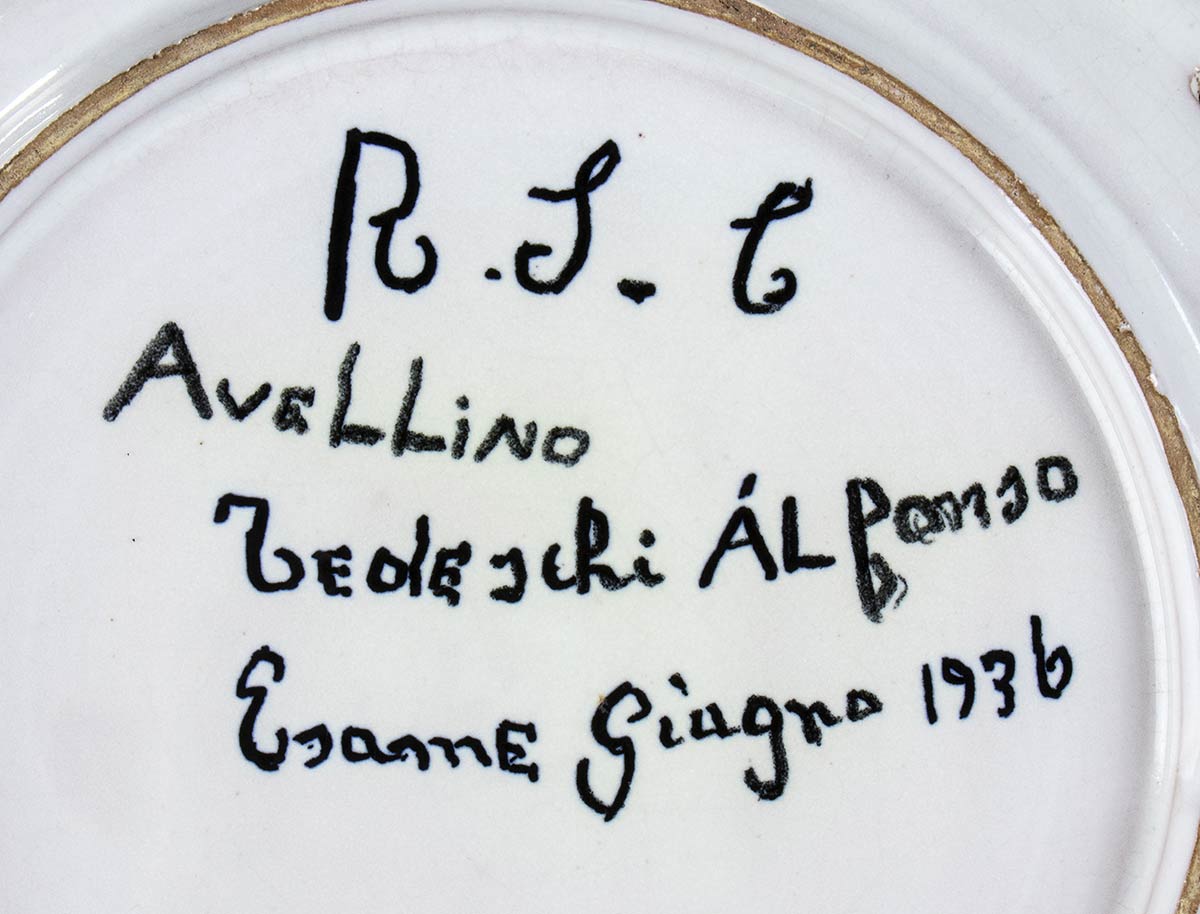 R.S.C
AVELLINO
TEDESchi ÁLFonso
EsamE Giugno 1936